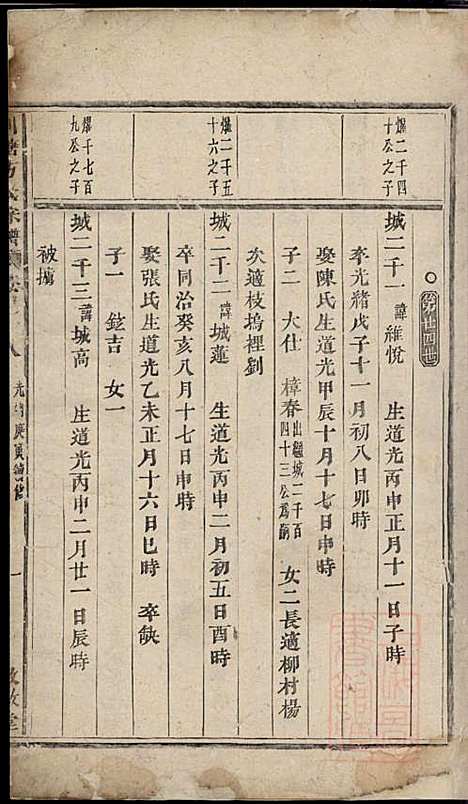 爀二千四
十公之子
城二千一 諱維悅 生道光丙申正月十一日子時
卒光緒戊子十一月初八日卯時
娶陳氏生道光甲辰十月十七日申時
子二 大仕 樟春 出繼城二千百
四十三公爲嗣 女二長適柳村楊
次適枝塢裡劉
爀二千五
十六之子
城二千二 諱城蓮 生道光丙申二月初五日酉時
卒同治癸亥八月十七日申時
娶張氏生道光乙未正月十六日巳時 卒缺
子一 鋐吉 女一
爀千七百
九公之子
城二千三 諱城高 生道光丙申二月廿一日辰時
被擄
光緒庚寅續修
一
敦敘堂